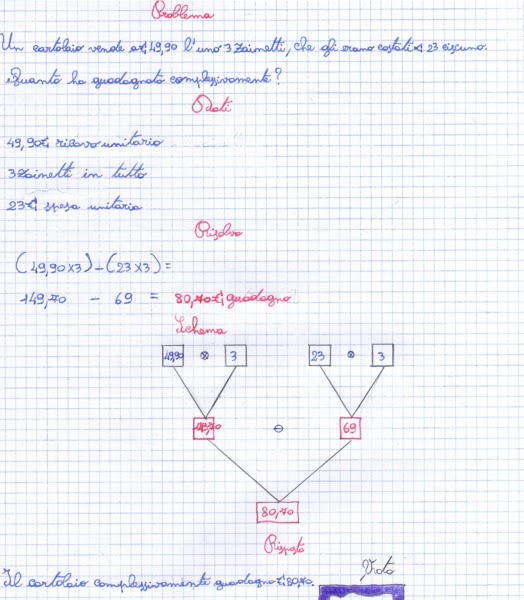 Problema
Un cartolaio vende a € 49,90 l'uno 3 zainetti, che gli erano costati € 23 ciscuno.
Quanto ha guadagnato complessivamente?
Dati
49,90 € ricavo unitario
3 zainetti in tutto
23 € spesa unitaria
Risolvo
(49,90 x 3) - (23 x 3) =
149,70 - 69 = 80,70 € guadagno
Schema
49,90 x 3 23 x 3
149,70 - 69
80,70
Risposta
Voto
Il cartolaio complessivamente guadagna € 80,70.